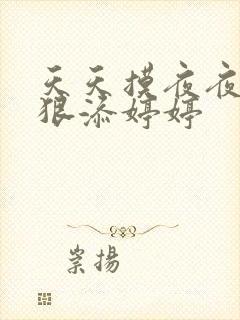 天天摸夜夜
狠添婷婷
崇揚